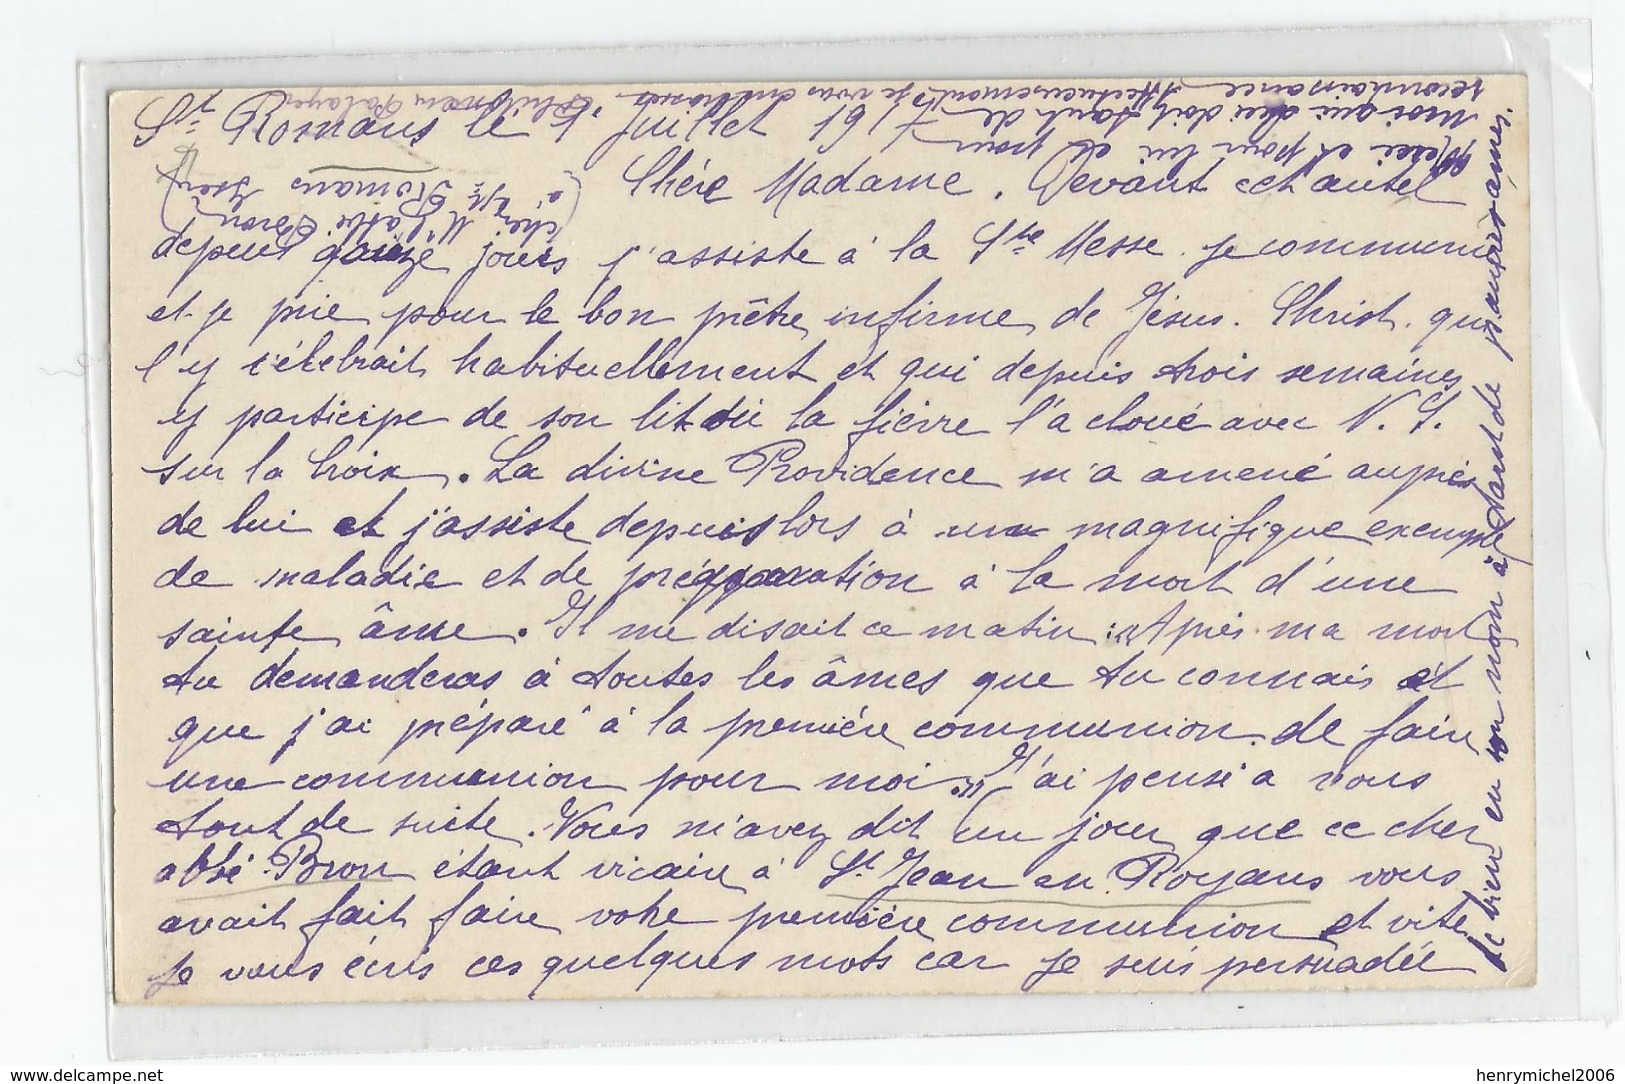 St Romans le 7 Juillet 1917
Chère Madame. Devant cet autel
depuis quinze jours j'assiste à la Ste Messe je communie
et je prie pour le bon prêtre infirme de Jésus-Christ qui
l'y célébrait habituellement et qui depuis trois semaines
y participe de son lit où la fièvre l'a cloué avec N. S.
sur la Croix. La divine Providence m'a amené auprès
de lui et j'assiste depuis lors à un magnifique exemple
de maladie et de préparation à la mort d'une
sainte âme. Il me disait ce matin : "Après ma mort
tu demanderas à toutes les âmes que tu connais et
que j'ai préparé à la première communion de faire
une communion pour moi." J'ai pensé à vous
tout de suite. Vous m'avez dit un jour que ce cher
abbé Bron étant vicaire à St Jean en Royans vous
avait fait faire votre première communion et vite
je vous écris ces quelques mots car je suis persuadée
de bien en son nom à tant de pauvres âmes.
Merci et pour lui et pour
moi qui lui doit tant de
reconnaissance
affectueusement je vous embrasse
(chez Mr l'abbé Bron
à St Romans Isère)
henrymichel2006